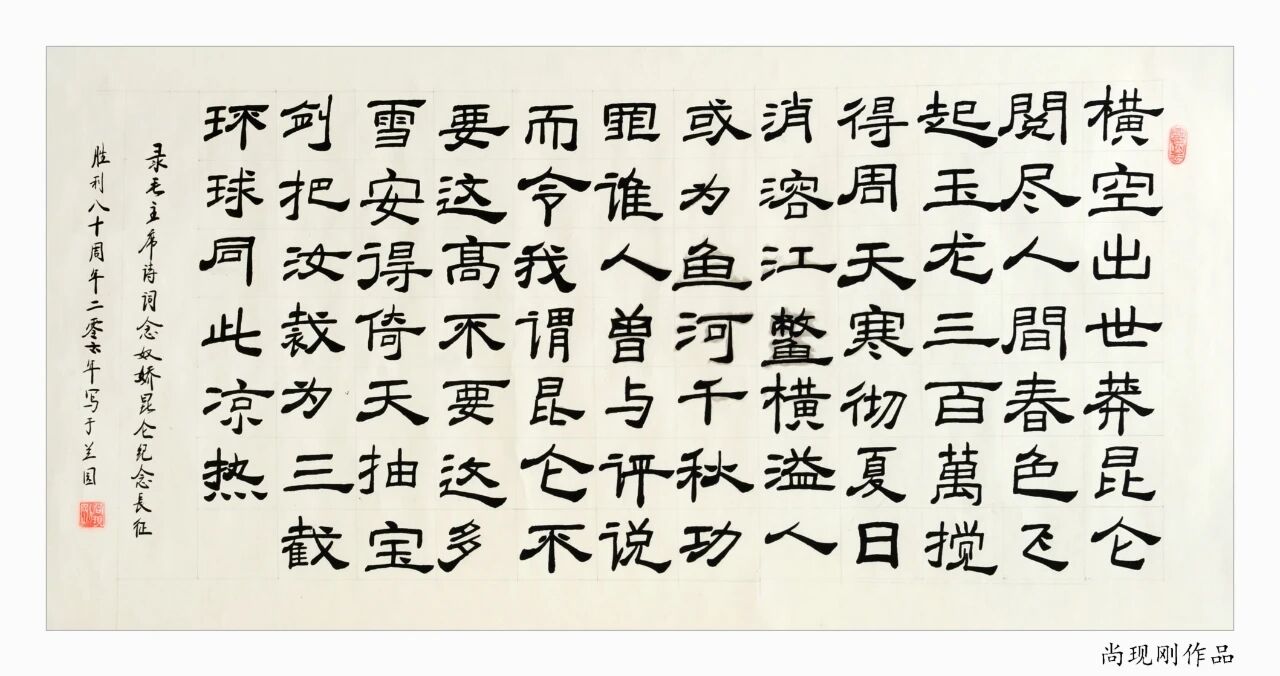 横空出世莽昆仑
閲尽人間春色飞
起玉龙三百萬搅
得周天寒彻夏日
消溶江鳖横溢人
或为鱼河千秋功
罪谁人曾与评说
而令我谓昆仑不
要这髙不要这多
雪安得倚天抽宝
剑把汝裁为三截
环球同此凉热
录毛主席诗词念奴娇昆仑纪念長征
胜利八十周年二零六年写于兰园
尚现刚作品